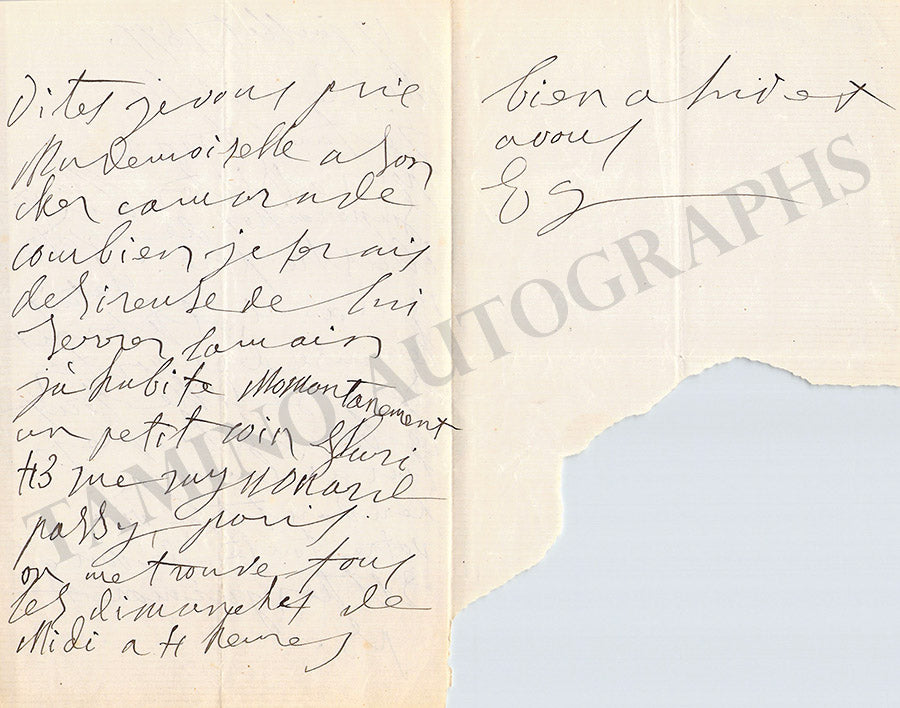 Dites je vous prie
Mademoiselle a son
cher camarade
combien je serais
desireuse de lui
serrer la main
j'habite Momontanement
un petit coin fleuri
43 rue raynouard
passy, paris.
on me trouve tous
les dimanches de
Midi a 4 heures
bien a lui et
a vous
E G
TAMINO AUTOGRAPHS